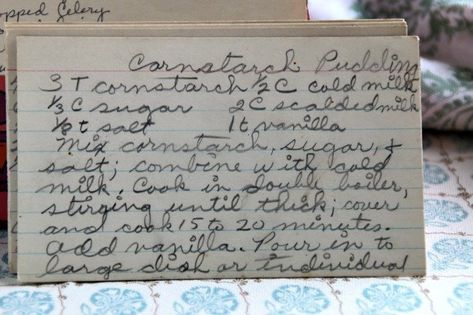 opped Celery
Cornstarch Pudding
3 T cornstarch ½ C cold milk
⅓ C sugar 2 C scalded milk
⅛ t salt 1 t vanilla
Mix cornstarch, sugar, &
salt; combine with cold
milk. Cook in double boiler,
stirring until thick; cover
and cook 15 to 20 minutes.
Add vanilla. Pour in to
large dish or individual